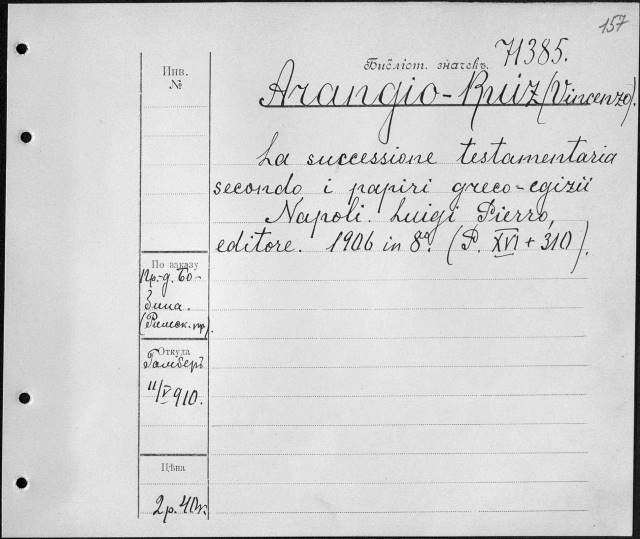 157
Библіот. значекъ. 71385.
Инв.
№
Arangio-Ruiz (Vincenzo).
La successione testamentaria
secondo i papiri greco-egizii
Napoli. Luigi Pierro,
editore. 1906 in 8º. (P. XVI + 310).
По заказу
Пр.-д. Бо-
гина.
(Римск. пр.).
Откуда
Гамберъ
11/V 910.
Цѣна
2 р. 40 к.